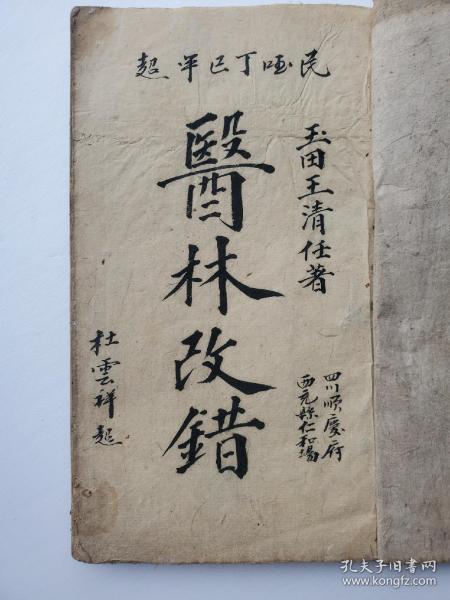 民国丁巳年超
玉田王清任著
四川順慶府
西充縣仁和場
醫林改錯
杜雲祥超
孔夫子旧书网
www.kongfz.com